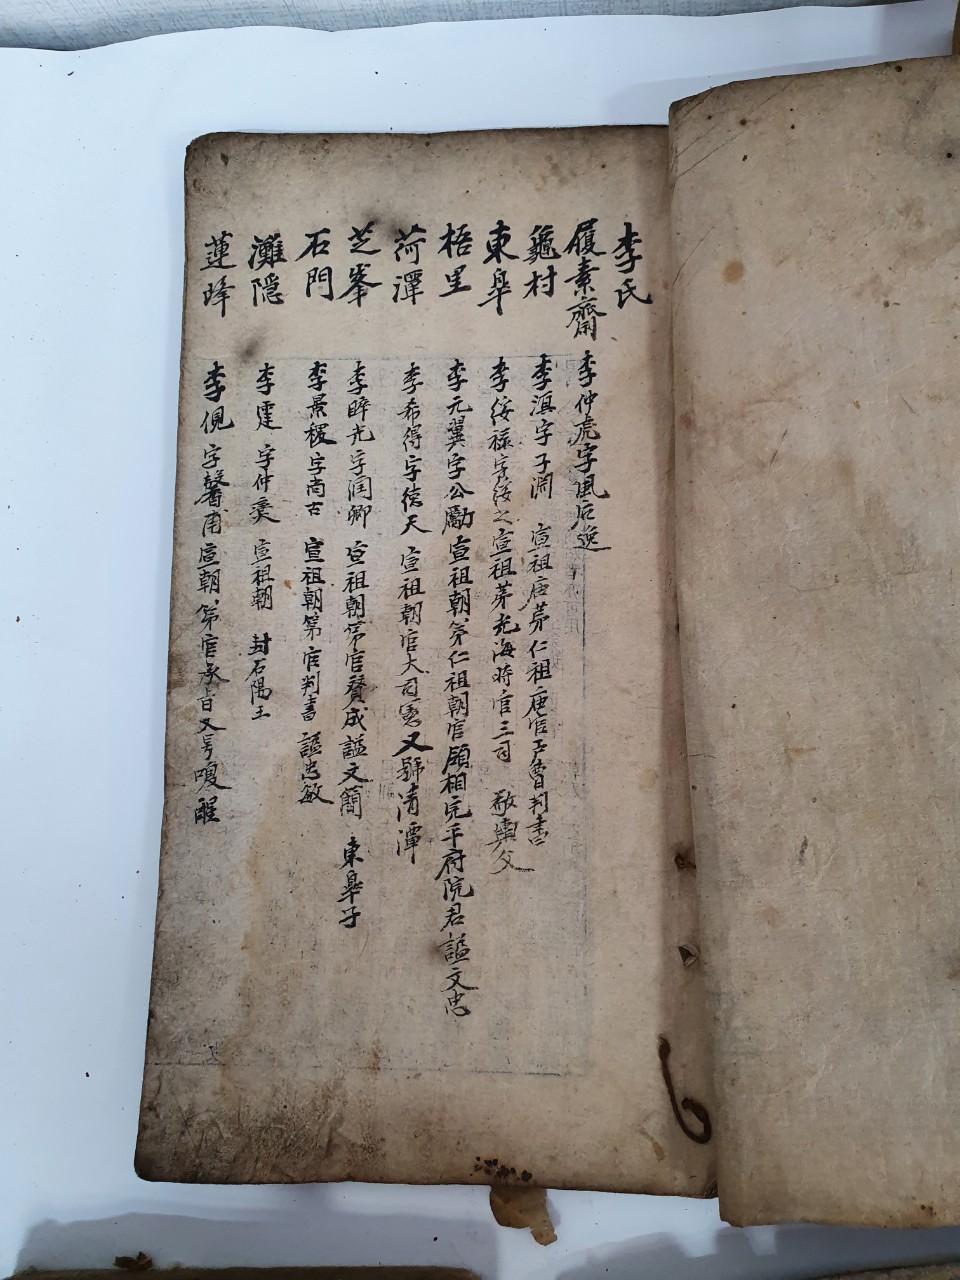 李氏
履素齋 李仲虎字風后逸
龜村 李溟字子淵 宣祖庚第仁祖庚官戶曹判書
東皐 李綏祿字綏之宣祖第光海時官三司 敬輿父
梧里 李元翼字公勵宣祖朝第仁祖朝官領相完平府院君諡文忠
荷潭 李希得字德天 宣祖朝官大司憲又號清潭
芝峯 李睟光字润卿 宣祖朝第官贊成諡文簡 東皐子
石門 李景稷字尚古 宣祖朝第官判書諡忠敏
灘隱 李霆 字仲燮 宣祖朝 封石陽王
蓮峰 李俔 字馨甫宣朝第官承旨又号嗄醒